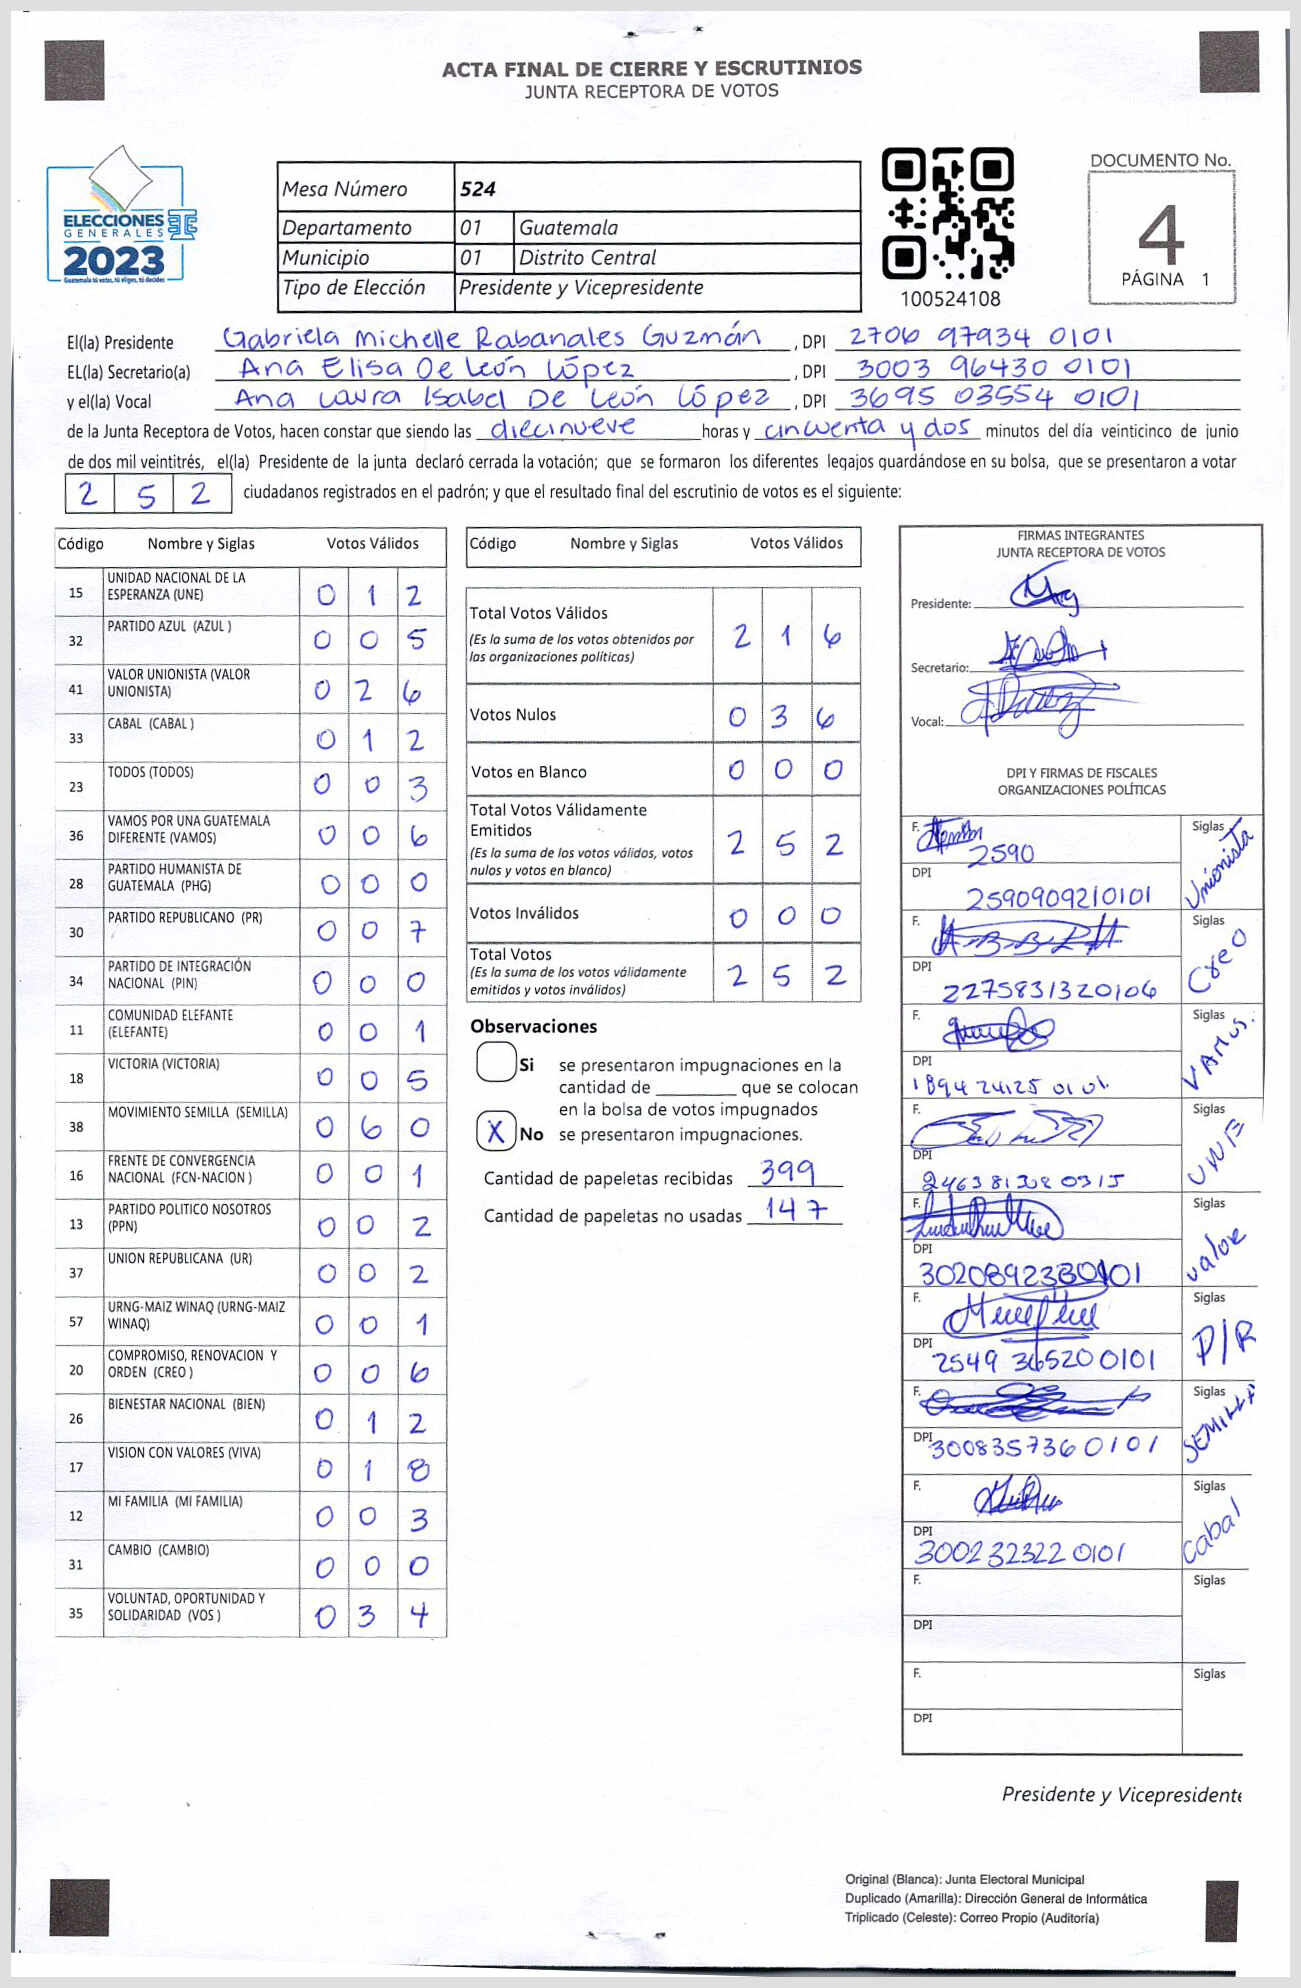 ACTA FINAL DE CIERRE Y ESCRUTINIOS
JUNTA RECEPTORA DE VOTOS
ELECCIONES
GENERALES
2023
Guatemala tú votas, tú eliges, tú decides
Mesa Número 524
Departamento 01 Guatemala
Municipio 01 Distrito Central
Tipo de Elección Presidente y Vicepresidente
100524108
DOCUMENTO No.
4
PÁGINA 1
El(la) Presidente Gabriela Michelle Rabanales Guzmán, DPI 2706 97934 0101
EL(la) Secretario(a) Ana Elisa De León López, DPI 3003 96430 0101
y el(la) Vocal Ana Laura Isabel De León López, DPI 3695 03554 0101
de la Junta Receptora de Votos, hacen constar que siendo las diecinueve horas y cincuenta y dos minutos del día veinticinco de junio
de dos mil veintitrés, el(la) Presidente de la junta declaró cerrada la votación; que se formaron los diferentes legajos guardándose en su bolsa, que se presentaron a votar
2 5 2 ciudadanos registrados en el padrón; y que el resultado final del escrutinio de votos es el siguiente:
Código Nombre y Siglas Votos Válidos
15 UNIDAD NACIONAL DE LA ESPERANZA (UNE) 0 1 2
32 PARTIDO AZUL (AZUL ) 0 0 5
41 VALOR UNIONISTA (VALOR UNIONISTA) 0 2 6
33 CABAL (CABAL ) 0 1 2
23 TODOS (TODOS) 0 0 3
36 VAMOS POR UNA GUATEMALA DIFERENTE (VAMOS) 0 0 6
28 PARTIDO HUMANISTA DE GUATEMALA (PHG) 0 0 0
30 PARTIDO REPUBLICANO (PR) 0 0 7
34 PARTIDO DE INTEGRACIÓN NACIONAL (PIN) 0 0 0
11 COMUNIDAD ELEFANTE (ELEFANTE) 0 0 1
18 VICTORIA (VICTORIA) 0 0 5
38 MOVIMIENTO SEMILLA (SEMILLA) 0 6 0
16 FRENTE DE CONVERGENCIA NACIONAL (FCN-NACION ) 0 0 1
13 PARTIDO POLITICO NOSOTROS (PPN) 0 0 2
37 UNION REPUBLICANA (UR) 0 0 2
57 URNG-MAIZ WINAQ (URNG-MAIZ WINAQ) 0 0 1
20 COMPROMISO, RENOVACION Y ORDEN (CREO ) 0 0 6
26 BIENESTAR NACIONAL (BIEN) 0 1 2
17 VISION CON VALORES (VIVA) 0 1 8
12 MI FAMILIA (MI FAMILIA) 0 0 3
31 CAMBIO (CAMBIO) 0 0 0
35 VOLUNTAD, OPORTUNIDAD Y SOLIDARIDAD (VOS ) 0 3 4
Código Nombre y Siglas Votos Válidos
Total Votos Válidos 2 1 6
(Es la suma de los votos obtenidos por
las organizaciones políticas)
Votos Nulos 0 3 6
Votos en Blanco 0 0 0
Total Votos Válidamente
Emitidos 2 5 2
(Es la suma de los votos válidos, votos
nulos y votos en blanco)
Votos Inválidos 0 0 0
Total Votos 2 5 2
(Es la suma de los votos válidamente
emitidos y votos inválidos)
Observaciones
Si se presentaron impugnaciones en la
cantidad de ________ que se colocan
en la bolsa de votos impugnados
X No se presentaron impugnaciones.
Cantidad de papeletas recibidas 399
Cantidad de papeletas no usadas 147
FIRMAS INTEGRANTES
JUNTA RECEPTORA DE VOTOS
Presidente:
Secretario:
Vocal:
DPI Y FIRMAS DE FISCALES
ORGANIZACIONES POLÍTICAS
F. 2590 Siglas Unionista
DPI 2590909210101
F. Siglas Creo
DPI 2275831320106
F. Siglas VAMOS.
DPI 1894 24125 0101
F. Siglas UNE
DPI
F. Siglas Valor
DPI
F. Siglas P/R
DPI 2549 36520 0101
F. Siglas SEMILLA
DPI 3008357360101
F. Siglas Cabal
DPI 300232322 0101
F. Siglas
DPI
F. Siglas
DPI
Presidente y Vicepresidente
Original (Blanca): Junta Electoral Municipal
Duplicado (Amarilla): Dirección General de Informática
Triplicado (Celeste): Correo Propio (Auditoría)